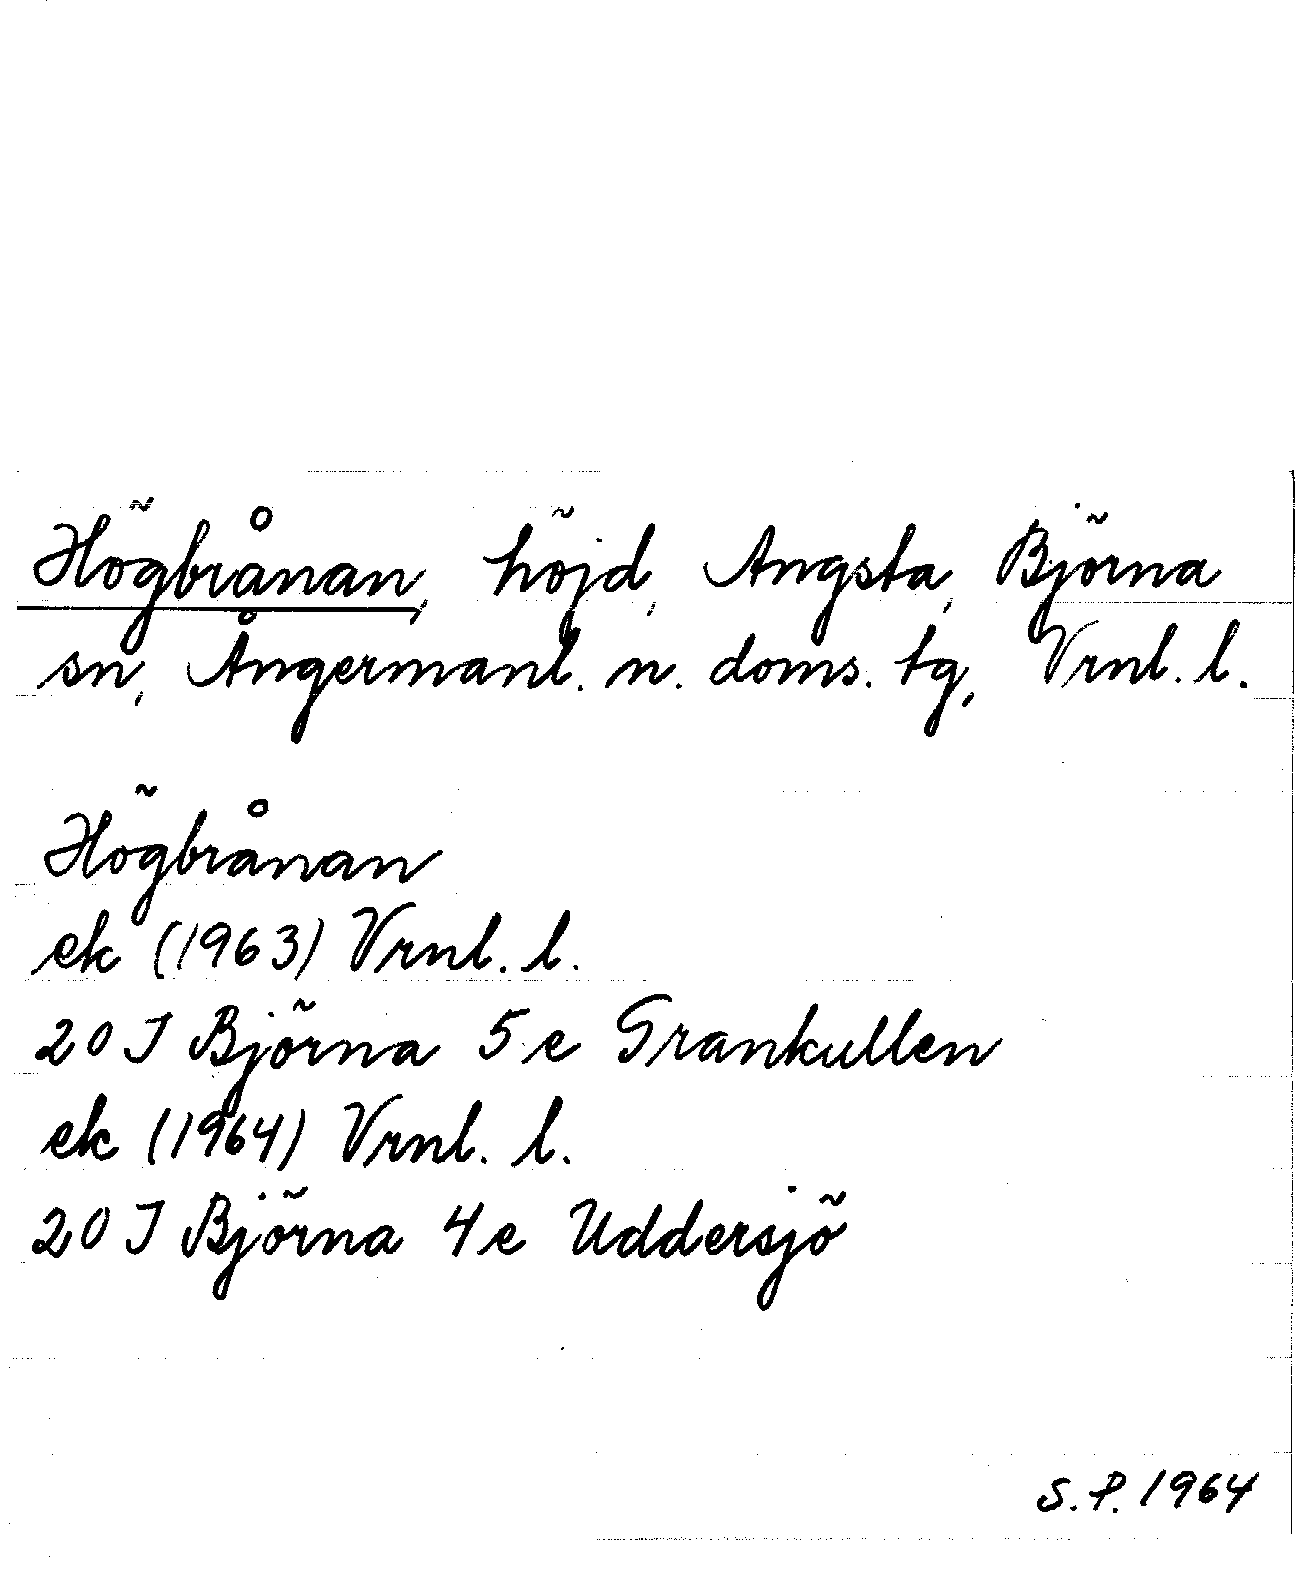 Högbrånan, höjd, Angsta, Björna
sn, Ångermanl. n. doms. tg, Vrnl. l.
Högbrånan
ek (1963) Vrnl. l.
20 J Björna 5 e Grankullen
ek (1964) Vrnl. l.
20 J Björna 4 e Uddersjö
S. P. 1964